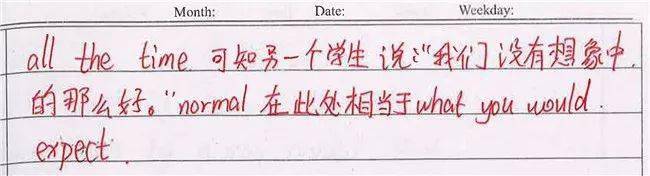 Month: Date: Weekday:
all the time 可知另一个学生说:"我们没有想象中
的那么好。"normal 在此处相当于what you would
expect.